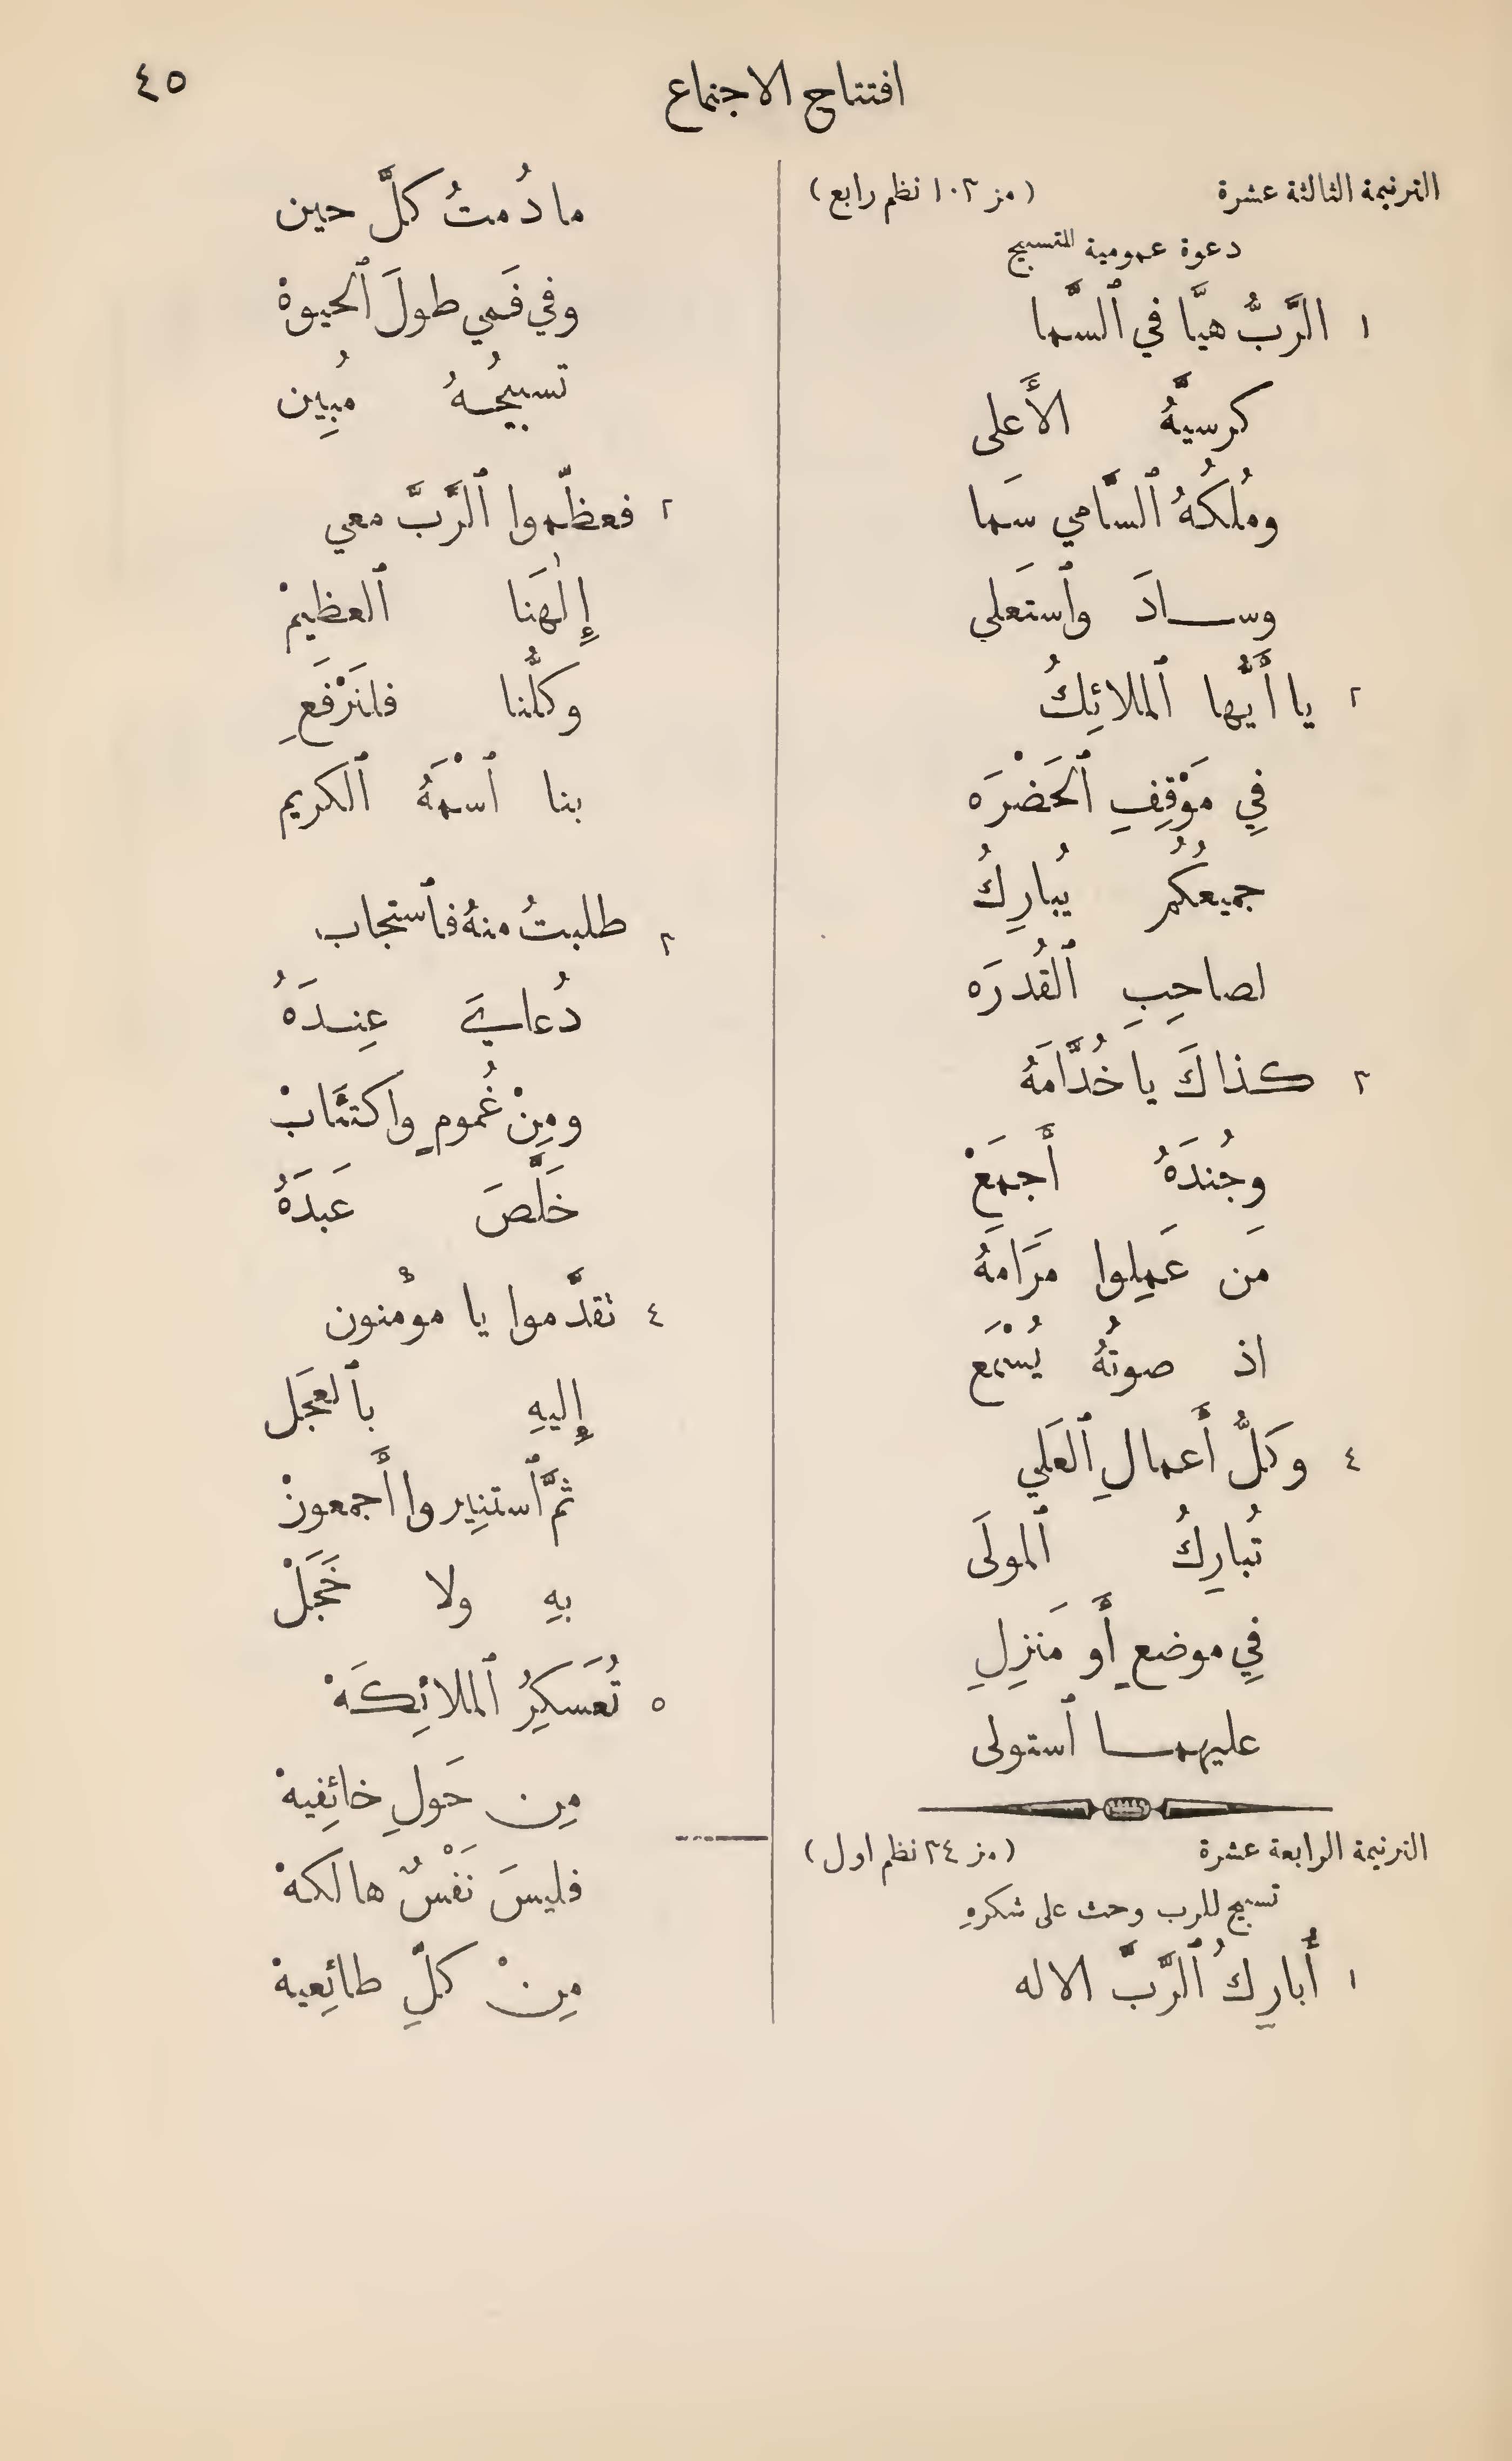 افتتاح الاجتماع
٤٥
الترنيمة الثالثة عشرة (مز ١٠٣ نظم رابع)
دعوة عمومية للتسبيج
١ الرَّبُّ هيَّا في ٱلسَّما
كرسيَّهُ الأَعلى
ومُلكُهُ ٱلسَّامي سَما
وسادَ وٱستَعلي
٢ يا أَيُّها ٱلملائِكُ
فِي مَوْقِفِ ٱلحَضْرَه
جميعُكُم يُبارِكُ
لصاحِبِ ٱلقُدرَه
٣ كذاكَ يا خُدَّامَهُ
وجُندَهُ أَجمَعْ
مَن عَمِلوا مَرَامَهُ
اذ صوتُهُ يُسْمَع
٤ وكلُّ أَعمالِ ٱلعَلي
تُبارِكُ ٱلمولَى
فِي موضعٍ أَو مَنزِلِ
عليهما ٱستولى
الترنيمة الرابعة عشرة (مز ٣٤ نظم اول)
تسبيح للرب وحث على شكرهِ
١ أُبارِكُ ٱلرَّبَّ الاله
ما دُمتُ كلَّ حين
وفي فَمي طولَ ٱلحيوةْ
تسبيحُهُ مُبِين
٢ فعظّموا ٱلرَّبَّ معي
إِلٰهَنا ٱلعظيمْ
وكلُّنا فلنَرْفَعِ
بنا ٱسْمَهُ ٱلكريم
٣ طلبتُ منهُ فٱستجاب
دُعايَ عِندَهُ
ومِنْ غُمومٍ واكتئَابْ
خَلَّصَ عَبدَهُ
٤ تقدَّموا يا مؤْمنون
إِليهِ بٱلعَجَل
ثمَّ ٱستنِيروا أَجمعونْ
بهِ ولا خَجَلْ
٥ تُعَسكِرُ ٱلملائِكَهْ
مِن حَولِ خائِفيهْ
فليسَ نَفْسٌ هالكهْ
مِنْ كلِّ طائِعيهْ